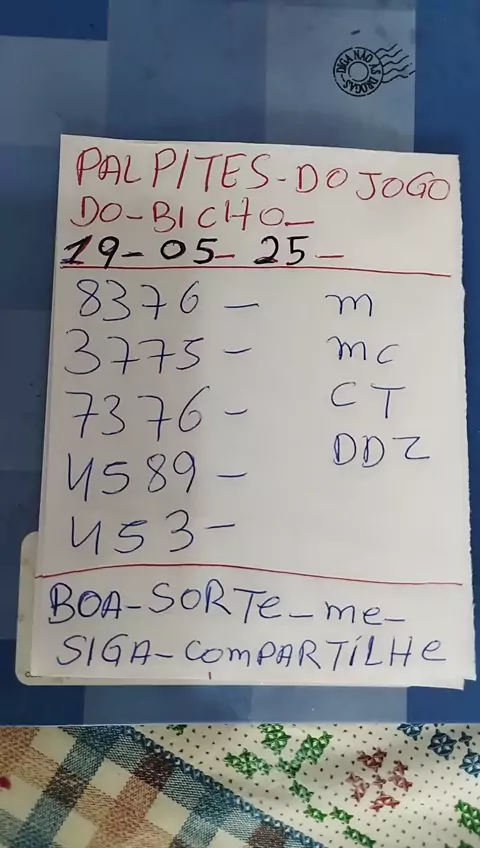 DIGA NÃO ÀS DROGAS
PALPITES-DO JOGO
DO-BICHO-
19-05-25-
8376- m
3775- mc
7376- CT
4589- DDZ
453-
BOA-SORTe-me-
SIGA-compARTiLHe